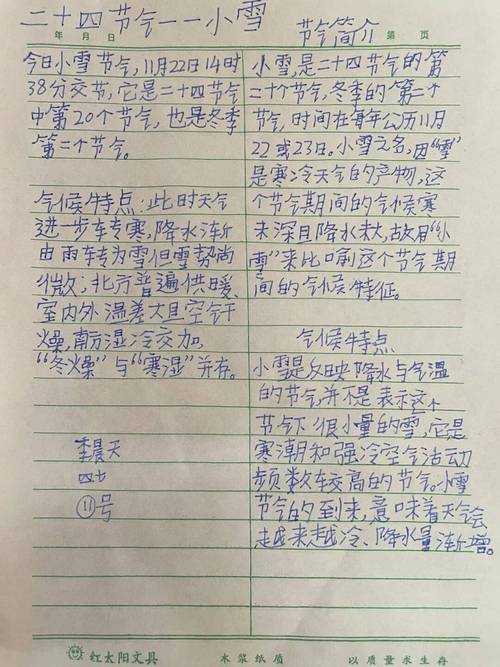 二十四节气——小雪
年 月 日
节气简介
第 页
今日小雪节气,11月22日14时
38分交节,它是二十四节气
中第20个节气,也是冬季
第二个节气。
气候特点:此时天气
进一步车专寒,降水渐
由雨车转为雪但雪势尚
微;北方普遍供暖、
室内外温差大且空气干
燥,南方湿冷交加,
“冬燥”与“寒湿”并存。
李晨天
四七
⑪号
小雪,是二十四节气的第
二十个节气,冬季的第二个
节气,时间在每年公历11月
22或23日。小雪之名,因“雪”
是寒冷天气的产物,这
个节气期间的气候寒
未深且降水未大,故用“小
雪”来比口俞这个节气期
间的气候特征。
气候特点
小雪是反映降水与气温
的节气,并不是表示这个
节气下很小量的雪,它是
寒潮和强冷空气活动
频数较高的节气。小雪
节气的到来,意味着天气会
越来越冷、降水量渐增。
红太阳文具
木浆纸质
以质量求生存